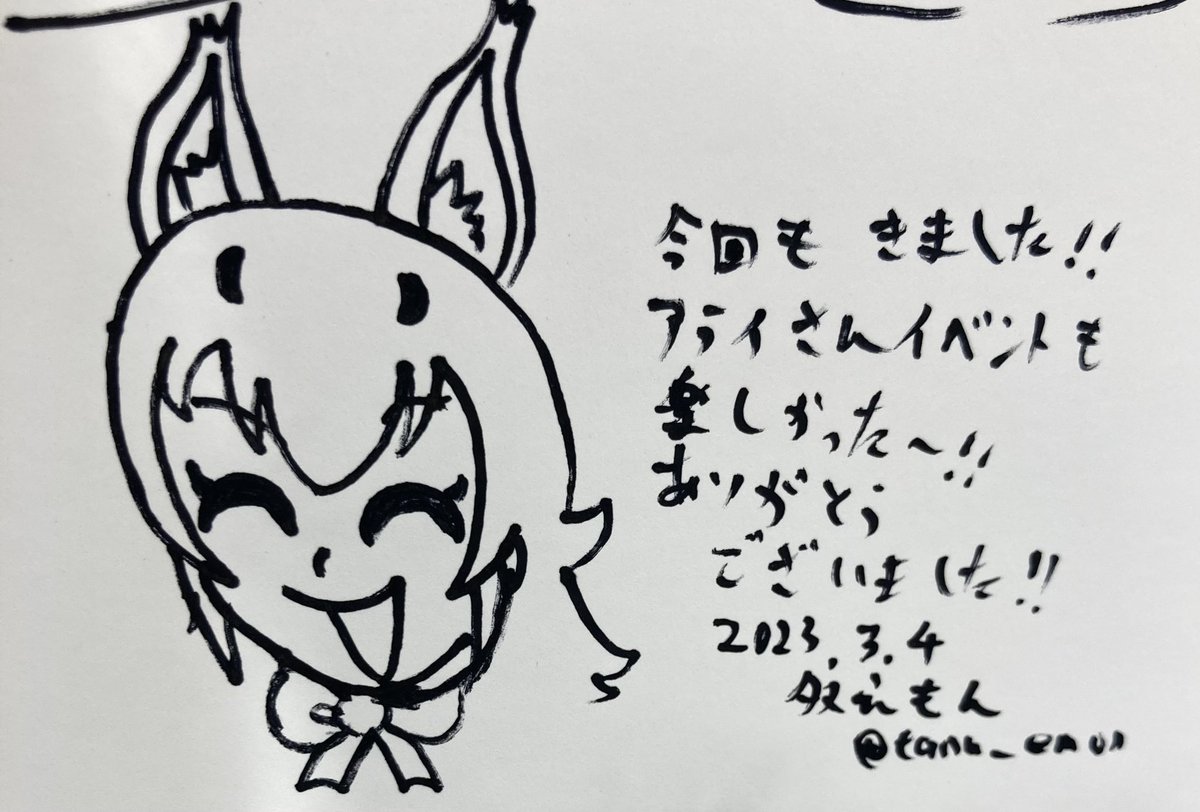 今回も きました!!
アライさんイベントも
楽しかった～!!
ありがとう
ございました!!
2023.3.4